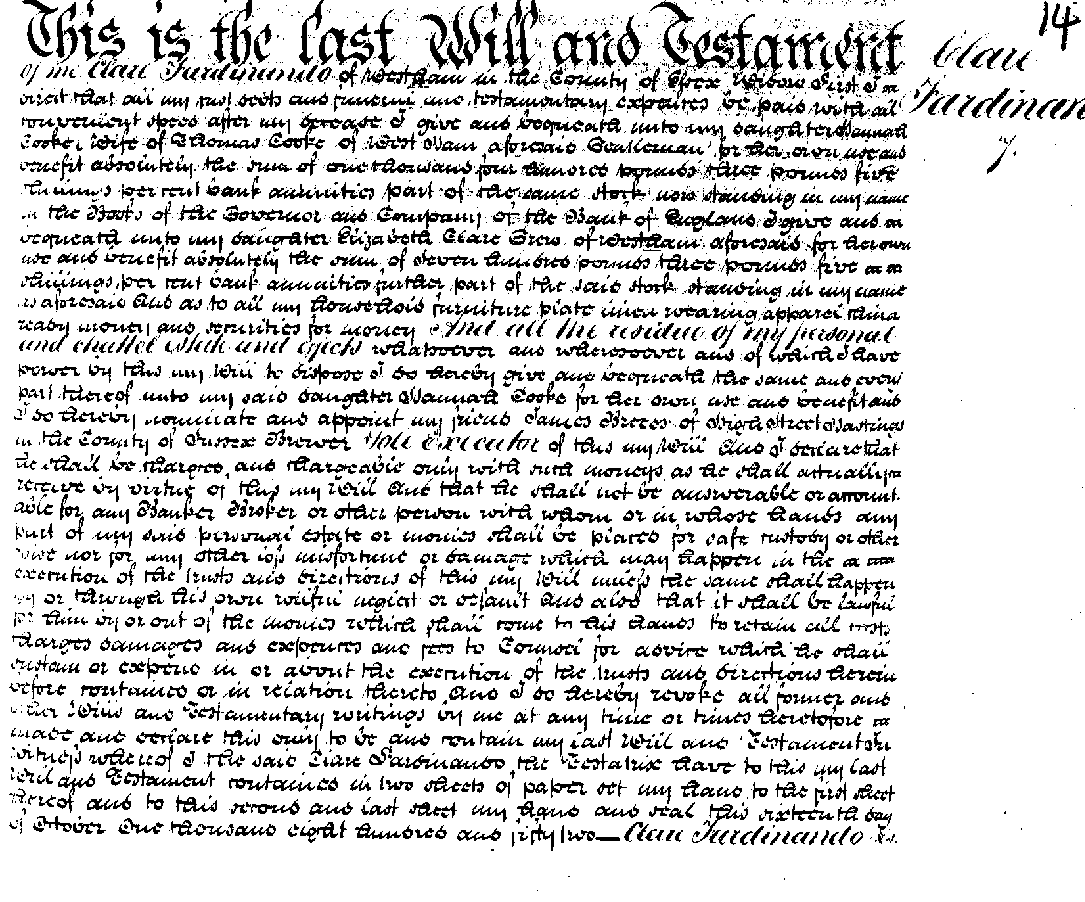 This is the last Will and Testament
14
Clare
Ferdinan
7.
of me Clare Ferdinando of Westham in the County of Essex Widow First I
direct that all my just debts and funeral and testamentary expences be paid with all
convenient speed after my decease I give and bequeath unto my daughter Hannah
Cooke Wife of Thomas Cooke of West Ham aforesaid Gentleman for her own use and
benefit absolutely the sum of one thousand four hundred pounds three pounds five
shillings per cent bank annuities part of the same stock now standing in my name
in the Books of the Governor and Company of the Bank of England I give and
bequeath unto my daughter Elizabeth Clare Grew of Westham aforesaid for her own
use and benefit absolutely the sum of seven hundred pounds three pounds five
shillings per cent bank annuities further part of the said stock standing in my name
as aforesaid And as to all my household furniture plate linen wearing apparel china
ready money and securities for money And all the residue of my personal
and chattel estate and effects whatsoever and wheresoever and of which I have
power by this my Will to dispose I do hereby give and bequeath the same and every
part thereof unto my said daughter Hannah Cooke for her own use and benefit and
I do hereby nominate and appoint my friend James Breeds of High Street Hastings
in the County of Sussex Brewer sole executor of this my Will And I declare that
he shall be charged and chargeable only with such moneys as he shall actually
receive by virtue of this my Will And that he shall not be answerable or account
able for any Banker Broker or other person with whom or in whose hands any
part of my said personal estate or monies shall be placed for safe custody or other
wise nor for any other loss misfortune or damage which may happen in the
execution of the trusts and directions of this my Will unless the same shall happen
by or through his own wilful neglect or default And also that it shall be lawful
for him by or out of the monies which shall come to his hands to retain all costs
charges damages and expences and fees to Counsel for advice which he shall
sustain or expend in or about the execution of the trusts and directions herein
before contained or in relation thereto And I do hereby revoke all former and
other Wills and Testamentary writings by me at any time or times heretofore
made and declare this only to be and contain my last Will and Testament In
witness whereof I the said Clare Ferdinando the Testatrix have to this my last
Will and Testament contained in two sheets of paper set my hand to the first sheet
thereof and to this second and last sheet my hand and seal this sixteenth day
of October One thousand eight hundred and fifty two — Clare Ferdinando